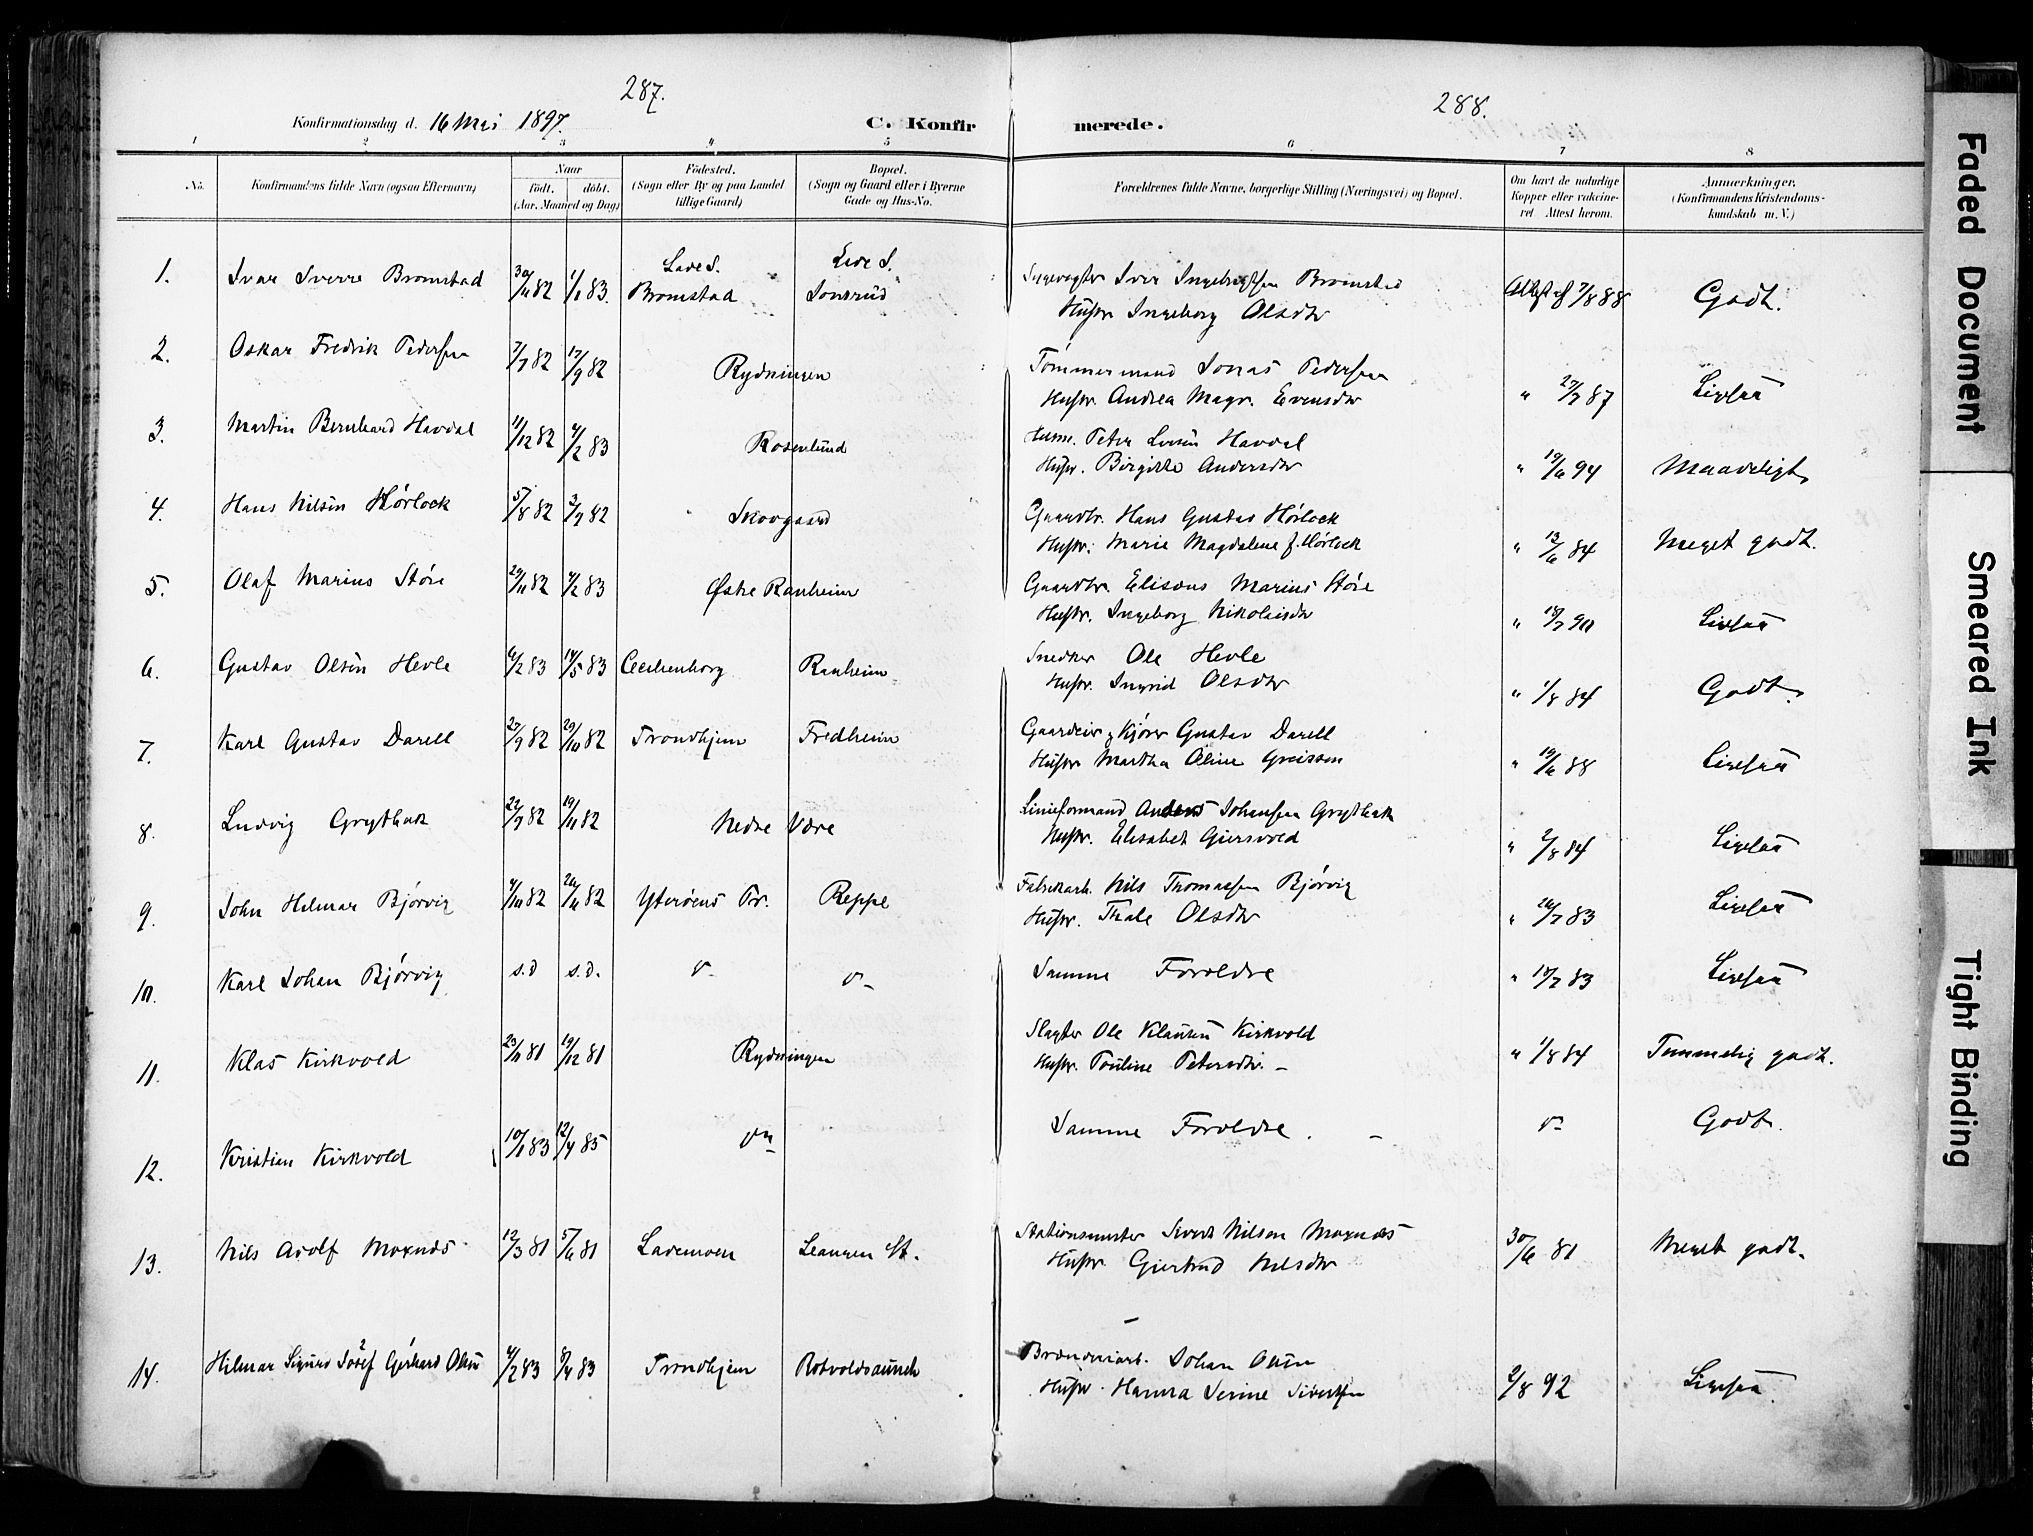 287.
288.
Konfirmationsdag d. 16 Mai 1897.
C. Konfirmerede.
1 2 3 4 5 6 7 8
No.
Konfirmandens fulde Navn (ogsaa Efternavn)
Naar
født. døbt.
(Aar, Maaned og Dag)
Fødested.
(Sogn eller By og paa Landet
tillige Gaard)
Bopæl.
(Sogn og Gaard eller i Byerne
Gade og Hus-No.
Forældrenes fulde Navne, borgerlige Stilling (Næringsvei) og Bopæl.
Om havt de naturlige
Kopper eller vakcine-
ret Attest herom.
Anmærkninger.
(Konfirmandens Kristendoms-
kundskab m. V.)
1. Ivar Sverre Bromstad 30/11 82 1/1 83. Lade S. Bromstad Lade S.
Iver Ingebrigtsen Bromstad
Hustr. Ingeborg Olsdtr 7/8 88 Godt.
2. Oskar Fredrik Pedersen 7/7 82 17/9 82 Rydningen
Tømmermand Jonas Pedersen
Hustr. Andrea Magr. Evensdtr " 27/7 87 Ligesaa
3. Martin Bernhard Havdal 11/12 82 4/2 83 Rosenlund
Husm. Peter Larsen Havdal
Hustr. Birgitte Andersdtr " 19/6 94 Maadeligt
4. Hans Nilsen Hørlock 5/8 82 3/9 82 Skovgaard
Gaardbr. Hans Gustav Hørlock
Hustr. Marie Magdalene f. Hørlock " 13/6 84 Meget godt.
5. Olaf Marius Støre 29/11 82 4/2 83 Østre Ranheim
Gaardbr. Eliseus Marius Støre
Hustr. Ingeborg Nikolaisdtr " 18/7 90 Ligesaa
6. Gustav Olsen Hevle 6/2 83 14/5 83 Cecilienborg Ranheim
Snedker Ole Hevle
Hustr. Ingrid Olsdtr " 1/8 84 Godt.
7. Karl Gustav Darell 27/9 82 29/10 82 Trondhjem Fredheim
Gaardeier Gustav Darell
Hustr Martha Oline " 19/6 88 Ligesaa
8. Ludvig Grytbak 22/9 82 19/11 82 Nedre Være
Linieformand Anders Johansen Grytbak
Hustr. Elisabet Gjersvold " 2/8 84 Ligesaa
9. John Hilmar Bjørvig 4/10 82 26/11 82 Ytterøens Pr. Reppe
Fabrikarb. Nils Thomassen Bjørvig
Hustr. Thale Olsdtr " 26/7 83 Ligesaa
10. Karl Johan Bjørvig s.d s.d.
Samme Forældre 83 Ligesaa
11. Klas Kirkvold 23/11 81 19/12 81 Rydningen
Slagter Ole Klausen Kirkvold
Hustr. Pauline Petersdtr. – " 1/8 84 Temmelig godt.
12. Kristian Kirkvold 10/1 83 12/4 85
Samme Forældre. – Godt.
13. Nils Adolf Moxnæs 12/3 81 5/6 81 Lademoen Leangen St.
Stationsmester Sivert Nilsen Moxnæs
Hustr Gjertrud Nilsdtr 30/6 81 Meget godt.
14. Hilmar Sigurd Josef Gerhard Olsen 4/2 83 8/4 83 Trondhjem Rotvoldsaunet
Johan Olsen
Hustr. Hanna Serine Sivertsen 2/8 92 Ligesaa.
Faded Document
Smeared Ink
Tight Binding